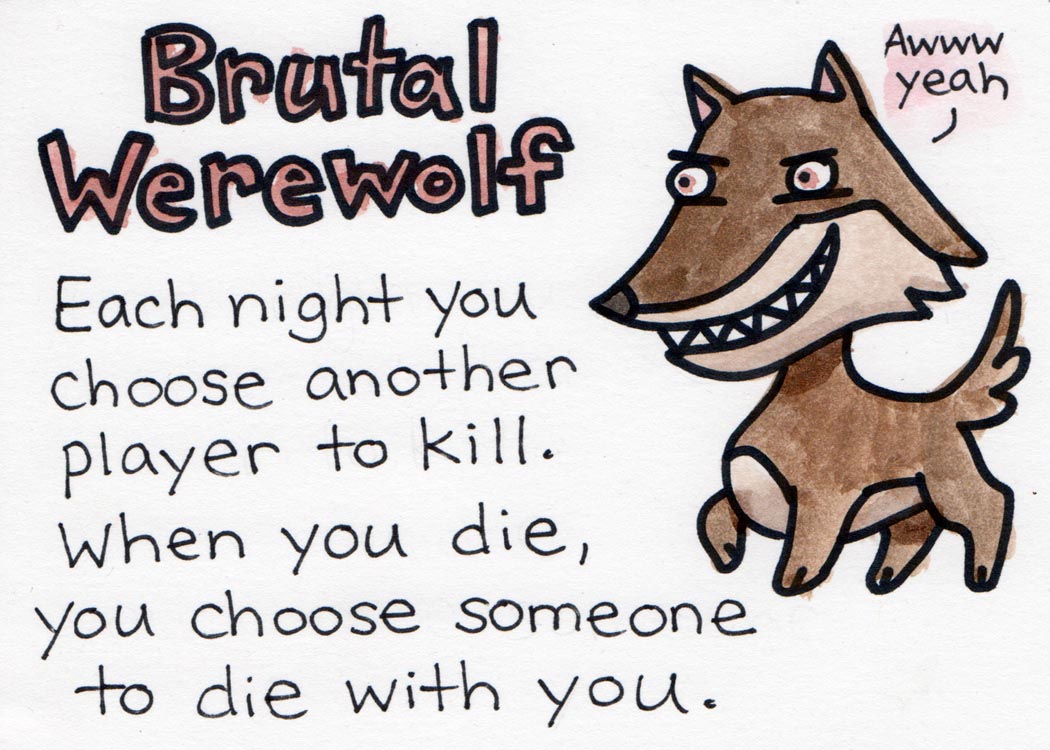 Brutal
Werewolf
Awww
yeah
Each night you
choose another
player to kill.
When you die,
you choose someone
to die with you.